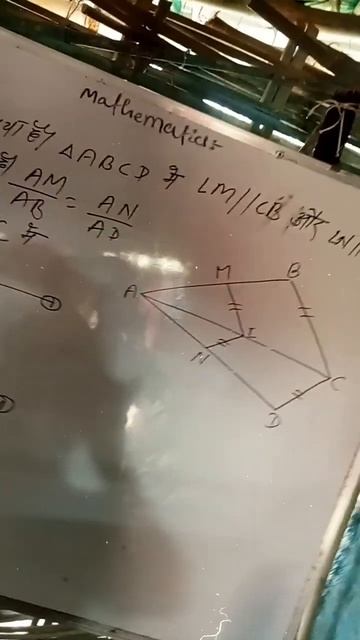 Mathematics:-
△ABCD में LM//CB और LN//
AM/AB = AN/AD
C में
M
B
A
I
N
C
D
①